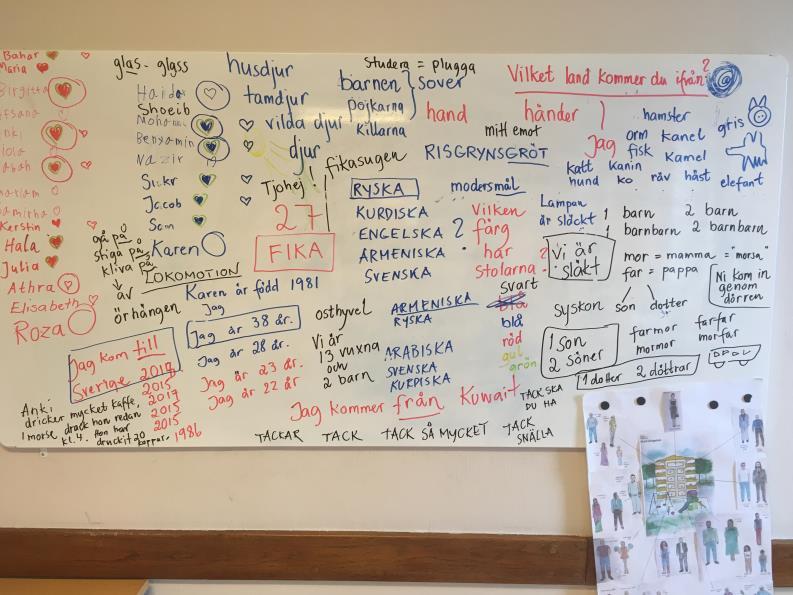 Bahar
Maria
Birgitta
Afsana
Anki
Hala
Kerstin
Julia
Athra
Elisabeth
Roza
glas - glass
Haidar
Shoeib
Benyamin
Nazir
Sukr
Jacob
Sam
Karen
gå på
stiga på
kliva på
av
LOKOMOTION
örhängen
husdjur
tamdjur
vilda djur
djur
Studera = plugga
barnen
pojkarna
killarna
sover
Vilket land kommer du ifrån?
hand
händer
mitt emot
RISGRYNSGRÖT
fikasugen
Tjohej!
27
FIKA
RYSKA
KURDISKA
ENGELSKA ?
ARMENISKA
SVENSKA
modersmål
Vilken
färg
har
stolarna ?
svart
blå
blå
röd
gul
grön
Jag
hamster
orm kanel
fisk Kamel
katt kanin
hund ko räv häst
gris
elefant
Lampan
är släckt
Vi är
släkt
1 barn 2 barn
1 barnbarn 2 barnbarn
mor = mamma = "morsa"
far = pappa
syskon son dotter
Ni kom in
genom
dörren
1 son
2 söner
farmor farfar
mormor morfar
1 dotter 2 döttrar
Karen är född 1981
Jag
Jag är 38 år.
Jag är 28 år.
Jag är 23 år
Jag är 22 år
osthyvel
Vi är
13 vuxna
och
2 barn
ARMENISKA
RYSKA
ARABISKA
SVENSKA
KURDISKA
Jag kom till
Sverige 2019
2015
2019
2015
2015
1986
Anki
dricker mycket kaffe,
I morse drack hon redan
kl. 4. Hon har
druckit 20 koppar.
Jag kommer från Kuwait
TACKAR TACK TACK SÅ MYCKET
TACK SKA
DU HA
TACK
SNÄLLA